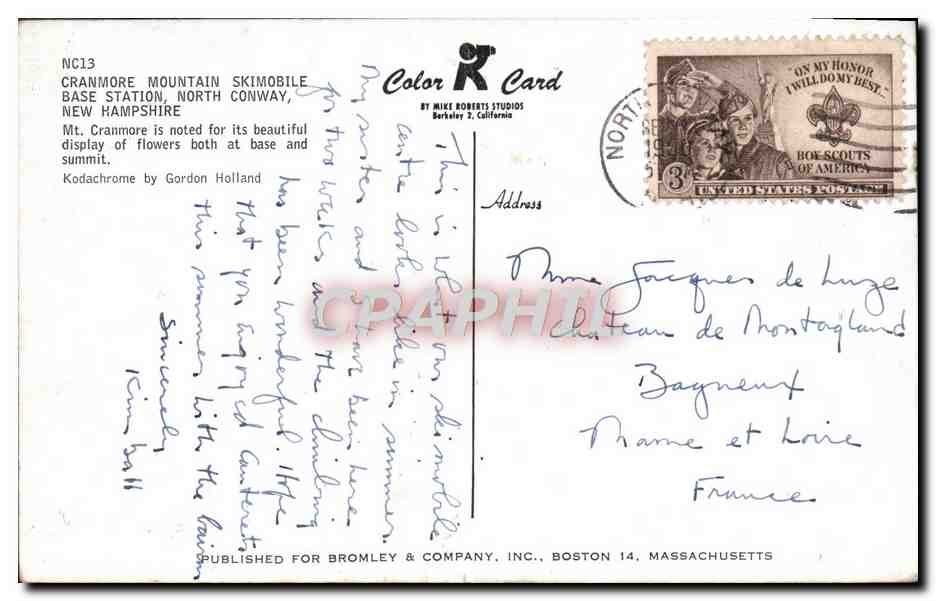 NC13
CRANMORE MOUNTAIN SKIMOBILE
BASE STATION, NORTH CONWAY,
NEW HAMPSHIRE
Mt. Cranmore is noted for its beautiful
display of flowers both at base and
summit.
Kodachrome by Gordon Holland
Color Card
BY MIKE ROBERTS STUDIOS
Berkeley 2, California
This is what our skimobile
centre looks like in summer.
My sister and I have been here
for two weeks and the climbing
has been wonderful. Hope
that you enjoyed Cauterets
this summer with the
Sincerely
Kimball
Address
Mme Jacques de Luze
Chateau de Montagland
Bagneux
Maine et Loire
France
"ON MY HONOR
I WILL DO MY BEST."
BOY SCOUTS
OF AMERICA
3¢
UNITED STATES POSTAGE
NORTH
CPAPHIL
PUBLISHED FOR BROMLEY & COMPANY, INC., BOSTON 14, MASSACHUSETTS